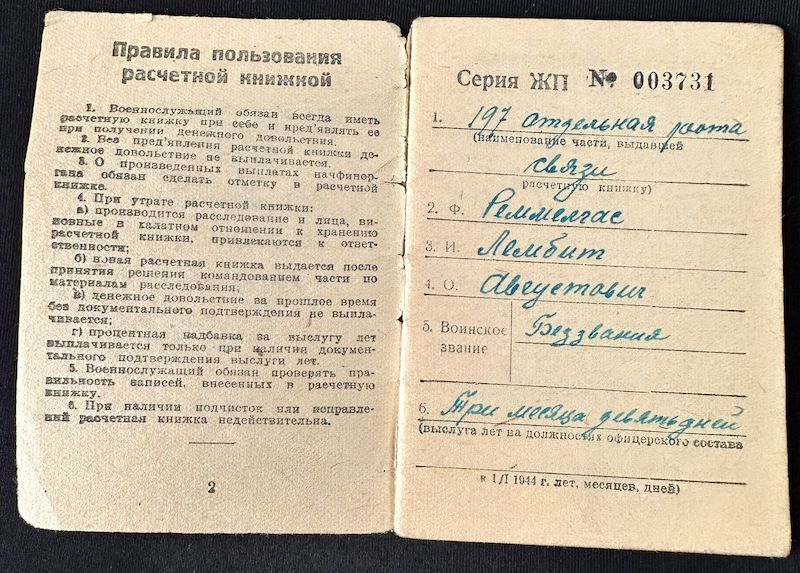 Правила пользования
расчетной книжкой
1. Военнослужащий обязан всегда иметь
расчетную книжку при себе и пред'являть ее
при получении денежного довольствия.
2. Без пред'явления расчетной книжки де-
нежное довольствие не выплачивается.
3. О произведенных выплатах начфинор-
гана обязан сделать отметку в расчетной
книжке.
4. При утрате расчетной книжки:
а) производится расследование и лица, ви-
новные в халатном отношении к хранению
расчетной книжки, привлекаются к ответ-
ственности;
б) новая расчетная книжка выдается после
принятия решения командованием части по
материалам расследования;
в) денежное довольствие за прошлое время
без документального подтверждения не выпла-
чивается;
г) процентная надбавка за выслугу лет
выплачивается только при наличии докумен-
тального подтверждения выслуги лет.
5. Военнослужащий обязан проверять пра-
вильность записей, внесенных в расчетную
книжку.
6. При наличии подчисток или исправле-
ний расчетная книжка недействительна.
2
Серия ЖП № 003731
1. 197 отдельная рота
(наименование части, выдавшей
связи
расчетную книжку)
2. Ф. Реммелгас
3. И. Лембит
4. О. Августович
5. Воинское Без звания
звание
6. Три месяца девять дней
(выслуга лет на должностях офицерского состава
к 1/I 1944 г. лет, месяцев, дней)